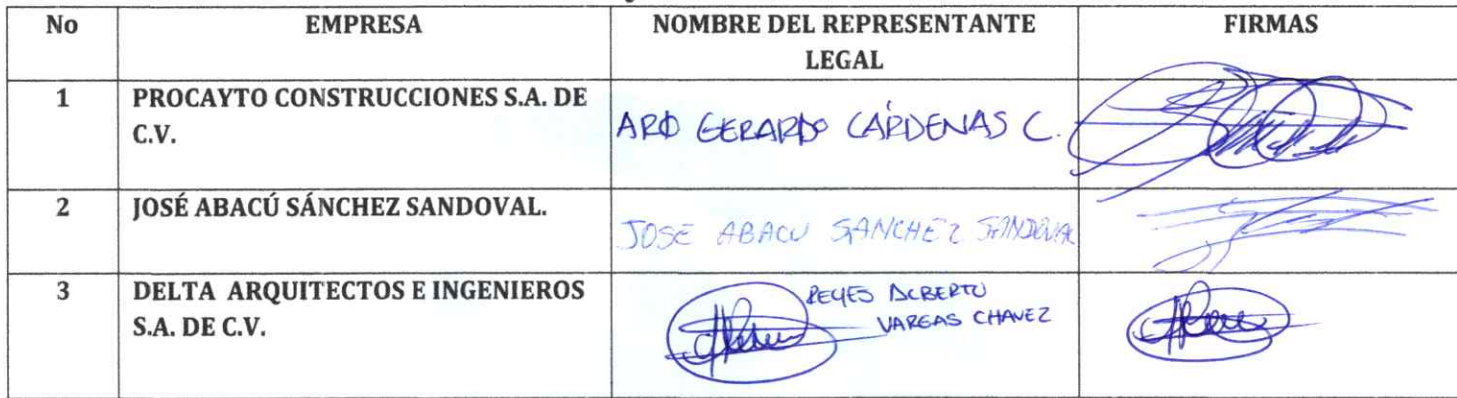 No EMPRESA NOMBRE DEL REPRESENTANTE LEGAL FIRMAS
1 PROCAYTO CONSTRUCCIONES S.A. DE C.V. ARQ GERARDO CÁRDENAS C.
2 JOSÉ ABACÚ SÁNCHEZ SANDOVAL. JOSE ABACU SANCHEZ SANDOVAL
3 DELTA ARQUITECTOS E INGENIEROS S.A. DE C.V. REYES ALBERTO VARGAS CHAVEZ